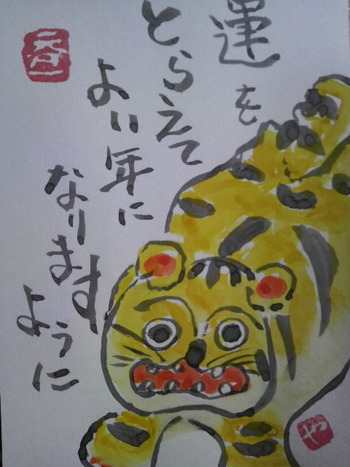 運を
とらえて
よい年に
なります
ように
や